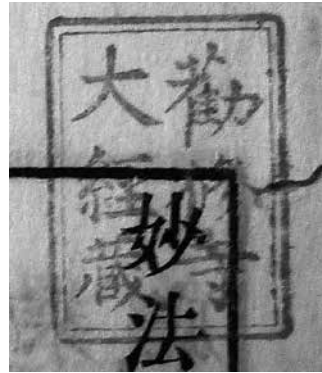 勸修寺
大經藏
妙法